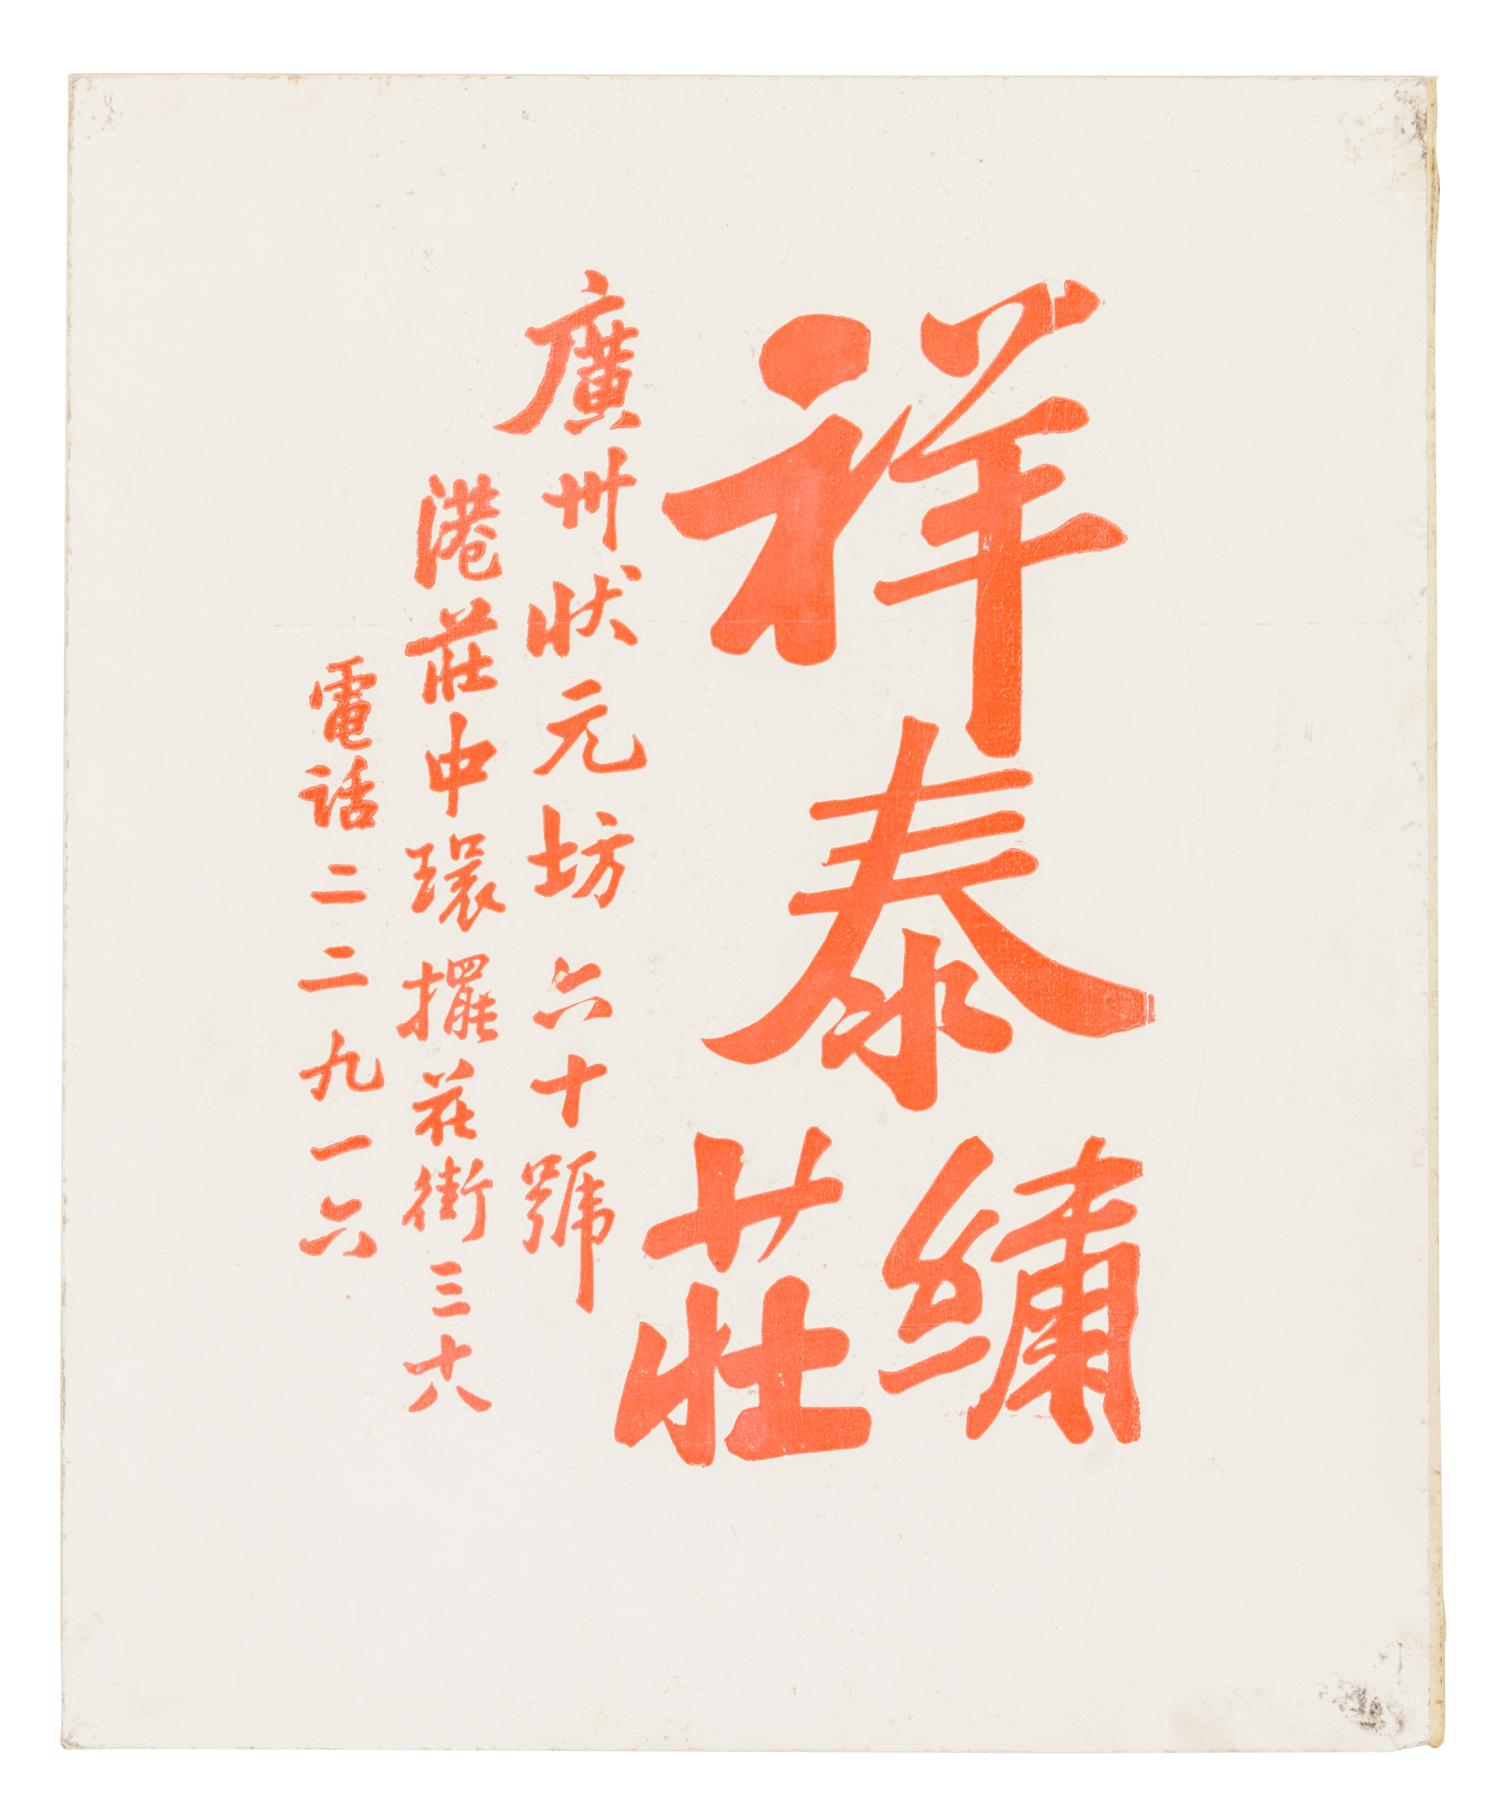 祥泰
繡莊
廣州狀元坊六十號
港莊中環擺花街三十八
電話二二九一六